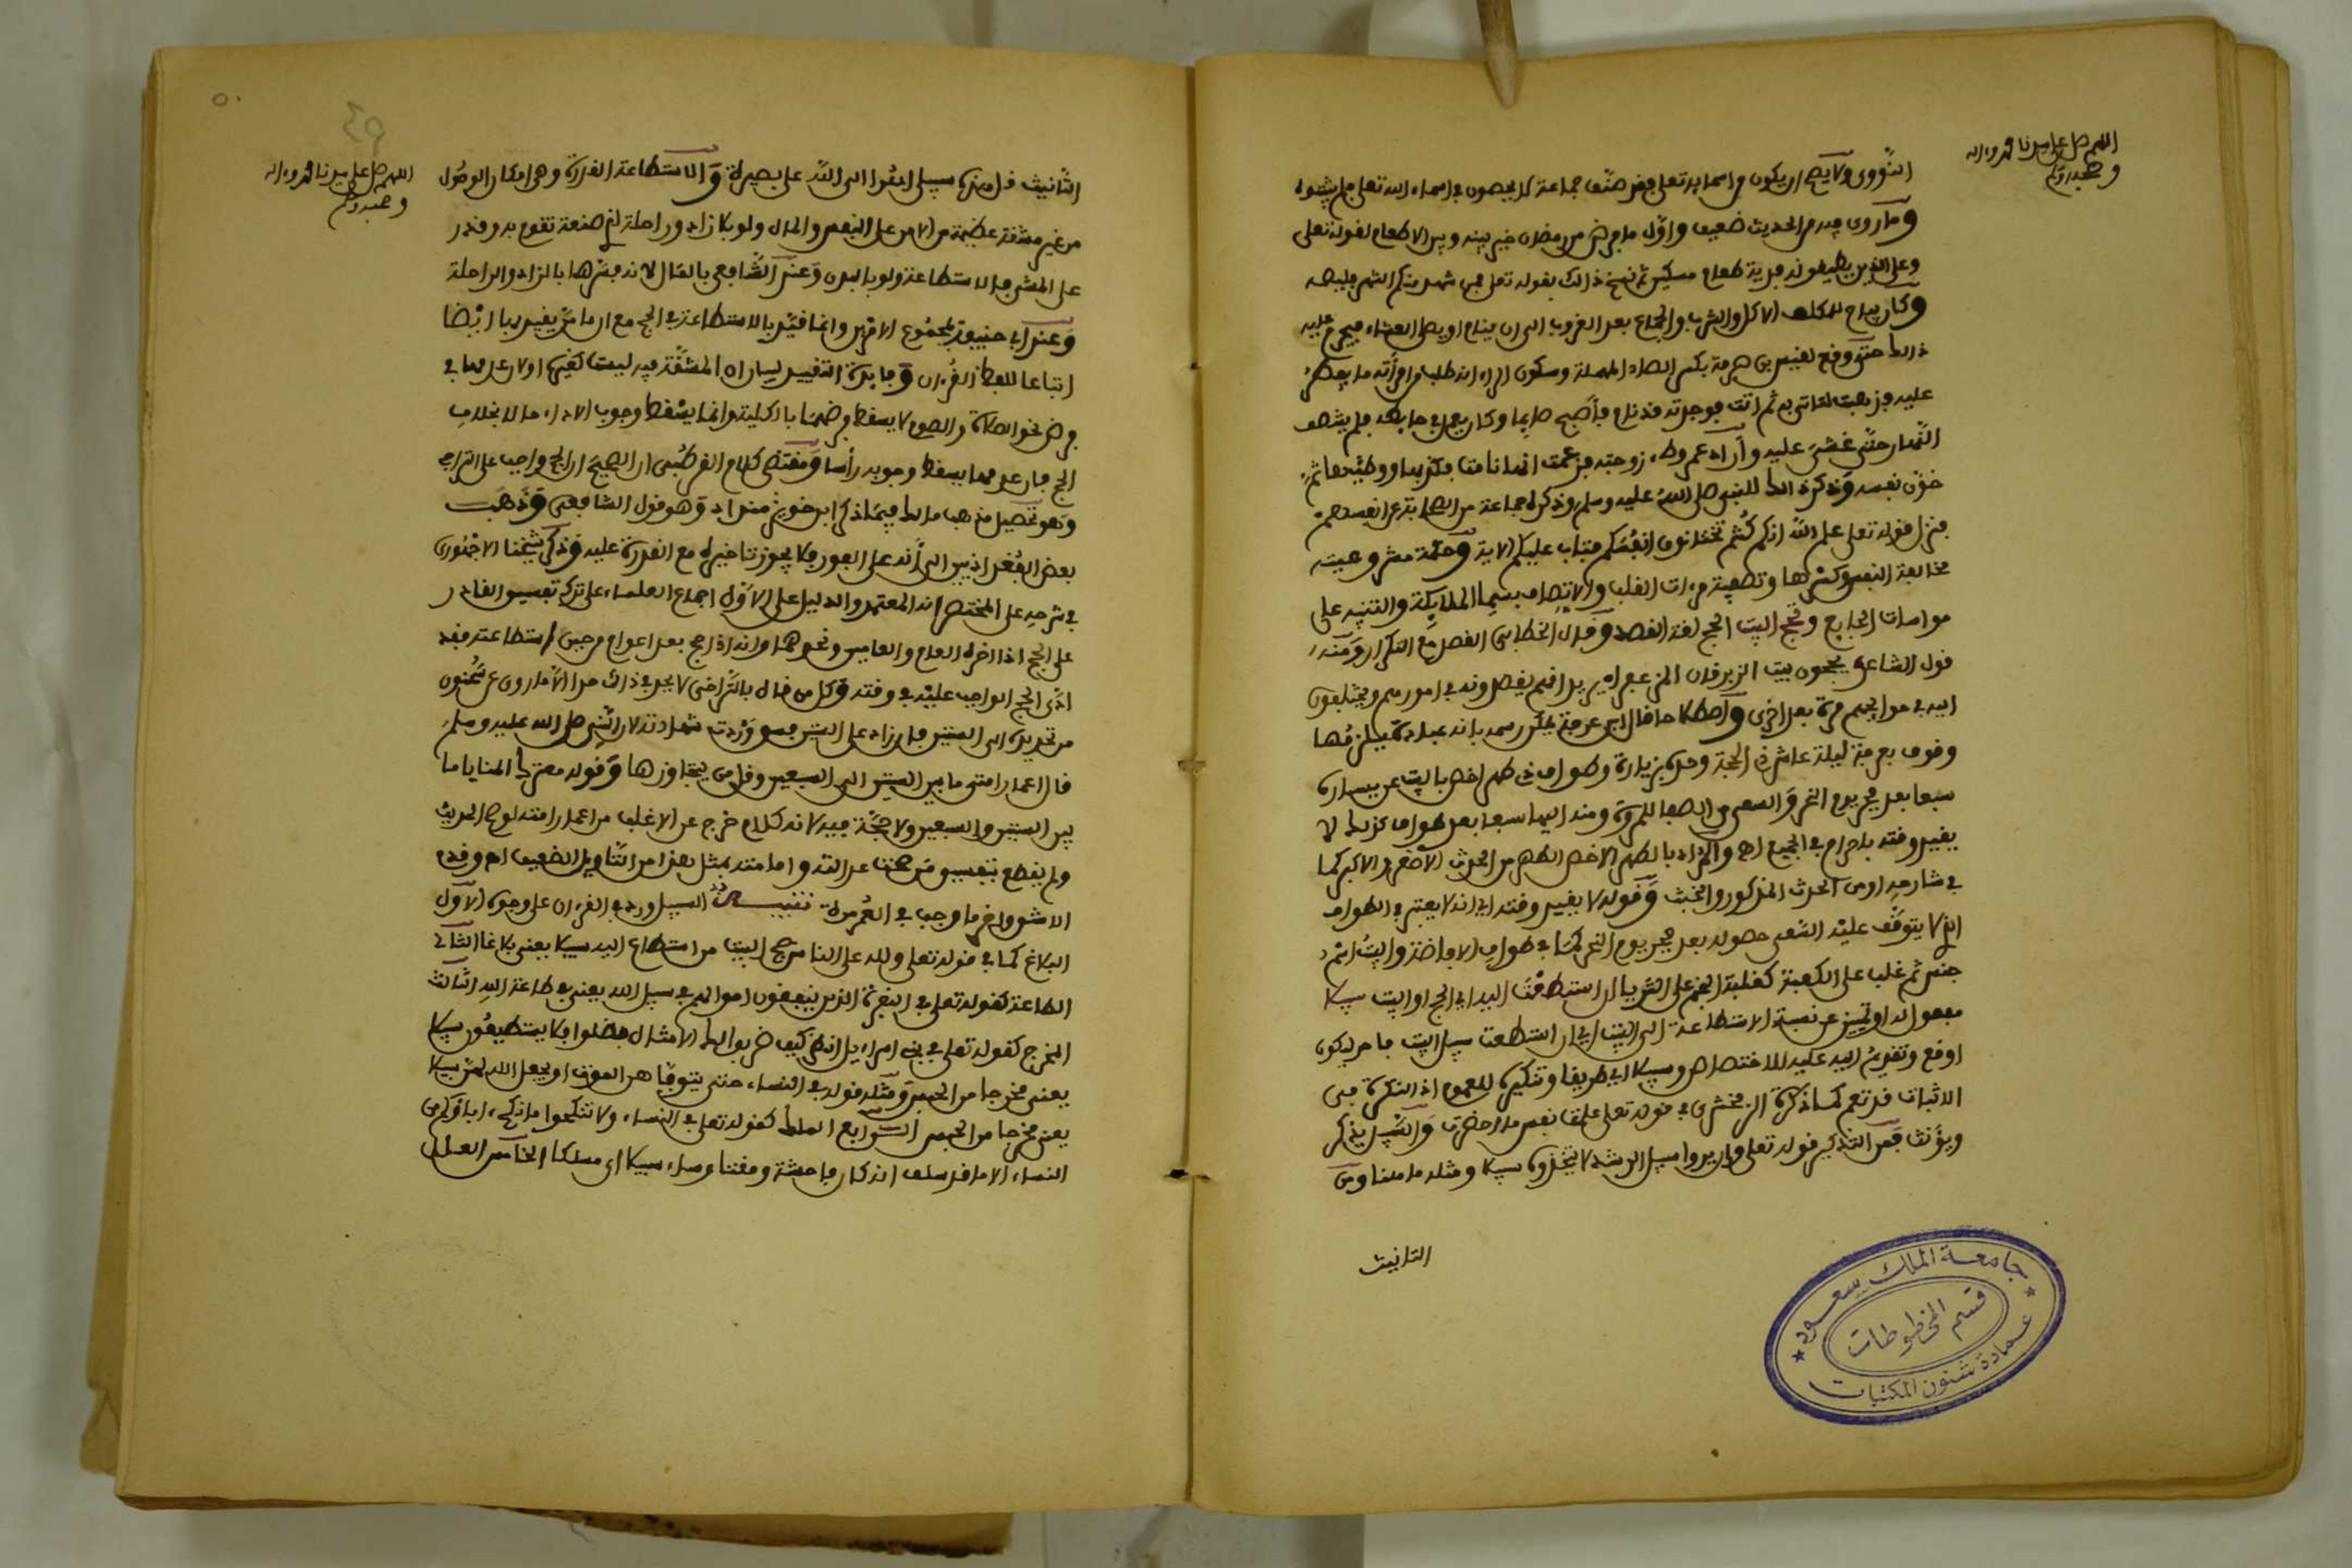 اللهم صل على سيدنا محمد وءاله
وصحبه وسلم
النووي ولا يصح ان يكون من اسماء الله تعلى وقد صنف جماعة لا يحصون في اسماء الله تعلى فلم يثبتوه
وما روي فيه من الحديث ضعيف واول ما فرض من رمضان خير بينه وبين الاطعام لقوله تعلى
وعلى الذين يطيقونه فدية طعام مسكين ثم نسخ ذالك بقوله تعلى فمن شهد منكم الشهر فليصمه
وكان يباح للمكلف الاكل والشرب والجماع بعد الغروب الى ان ينام او يصلي العشاء فيحرم عليه
ذالك حتى وقع لقيس بن صرمة بكسر الصاد المهملة وسكون الراء انه طلب من امرأته ما يفطر
عليه فذهبت لتاتي به ثم اتت فوجدته قد نام فأصبح صايما وكان يعمل في حايطه فلم ينتصف
النهار حتى غشي عليه وأراد عمر وطء زوجته فزعمت انها نامت فكذبها ووطئها ثم
خون نفسه وذكر ذالك للنبي صلى الله عليه وسلم وذكره جماعة من الصحابة عن انفسهم
فنزل قوله تعلى علم الله انكم كنتم تختانون انفسكم فتاب عليكم الاية وحكمة مشروعيته
مخالفة النفس وكسرها وتصفية مرءات القلب والاتصاف بسيما الملايكة والتنبيه على
مواسات الجايع وحج البيت الحج لغة القصد وقال الخطابي القصد مع التكرار ومنه
قول الشاعر يحجون بيت الزبرقان المزعفرا يريد انهم يقصدونه في امورهم ويختلفون
اليه في حوايجهم مرة بعد اخرى واصطلاحا قال ابن عرفة يمكن رسمه بانه عبادة يلزمها
وقوف بعرفة ليلة عاشر ذي الحجة وحده بزيارة وطواف ذي طهر اخص بالبيت عن يساره
سبعا بعد فجر يوم النحر والسعي من الصفا للمروة ومنه اليها سبعا بعد طواف كذالك لا
بقيد وقته باحرام في الجميع اه والمراد بالطهر الاخص الطهر من الحدث الاصغر والاكبر كما
في شارحه او من الحدث المذكور والخبث وقوله لا بقيد وقته اي انه لا يعتبر في الطواف
الذي لا يتوقف عليه السعي حصوله بعد فجر يوم النحر كما في طواف الافاضة والبيت اسم
جنس ثم غلب على الكعبة كغلبة النجم على الثريا ان استطعت اليه اي الحج او البيت سبيلا
مفعول له او تمييز عن نسبة الاستطاعة الى البيت اي ان استطعت سبيل البيت فاخر ليكون
اوقع وتقديم اليه عليه للاختصاص وسبيلا اي طريقا وتنكيره للعموم اذ النكرة في
الاثبات قد تعم كما ذكره الزمخشري في قوله تعلى علمت نفس ما احضرت والسبيل يذكر
ويؤنث فمن التذكير قوله تعلى وان يروا سبيل الرشد لا يتخذوه سبيلا ومثله ما هنا ومن
التانيث
جامعة الملك سعود
قسم المخطوطات
عمادة شئون المكتبات
٥٠
اللهم صل على سيدنا محمد وءاله
وصحبه وسلم
التأنيث قل هذه سبيلي ادعوا الى الله على بصيرة والاستطاعة القدرة وهي امكان الوصول
من غير مشقة عظيمة مع الامن على النفس والمال ولو بلا زاد وراحلة لذي صنعة تقوم به وقدر
على المشي فالاستطاعة ولو بالبدن وعند الشافعي بالمال لانه فسرها بالزاد والراحلة
وعند ابي حنيفة بمجموع الامرين وانما قيد بالاستطاعة في الحج مع ان ما مر يقيد بها ايضا
اتباعا للفظ القرءان وفايدة التقييد بيان ان المشقة فيه ليست كغيره او لان عدمها في
فرض نحو الصلاة والصوم لا يسقط فرضهما بالكلية وانما يسقط وجوب الاداء حالا بخلاف
الحج فان عدمها يسقط وجوبه رأسا ومقتضى كلام القرطبي ان الصحيح ان الحج واجب على التراخي
وهو تحصيل مذهب مالك فيما ذكر ابن خويز منداد وهو قول الشافعي وذهب
بعض البغداديين الى أنه على الفور فلا يجوز تاخيره مع القدرة عليه وذكر شيخنا الاجهوري
في شرحه على المختصر انه المعتمد والدليل على الاول اجماع العلماء على ترك تفسيق القادر
على الحج اذا اخره العام والعامين ونحوهما وانه اذا حج بعد اعوام من حين استطاعته فقد
ادى الحج الواجب عليه في وقته وكل من قال بالتراضي لا يحد في ذالك حدا الا ما روي عن سحنون
من تحديده الى الستين فان زاد على الستين فسق وردت شهادته لان النبي صلى الله عليه وسلم
قال اعمار امتي ما بين الستين الى السبعين وقل من يتجاوزها وقوله معترك المنايا ما
بين الستين والسبعين ولا حجة فيه لانه كلام خرج عن الاغلب من اعمار امته لو صح الحديث
ولم يقطع بتفسيق من صحت عدالته وامانته بمثل هذا من التاويل الضعيف اه وقدم
الاشق واخر ما وجب في العمر مرة تنبيه السبيل ورد في القرءان على وجوه الاول
البلاغ كما في قوله تعلى ولله على الناس حج البيت من استطاع اليه سبيلا يعني بلاغا الثاني
الطاعة كقوله تعلى في البقرة الذين ينفقون اموالهم في سبيل الله يعني في طاعة الله الثالث
المخرج كقوله تعلى في بني اسراءيل انظر كيف ضربوا لك الامثال فضلوا فلا يستطيعون سبيلا
يعني مخرجا من الحبس ومثله قوله في النساء حتى يتوفاهن الموت او يجعل الله لهن سبيلا
يعني مخرجا من الحبس الرابع المسلك كقوله تعلى في النساء ولا تنكحوا ما نكح ءاباؤكم من
النساء الا ما قد سلف انه كان فاحشة ومقتا وساء سبيلا اي مسلكا الخامس العلل